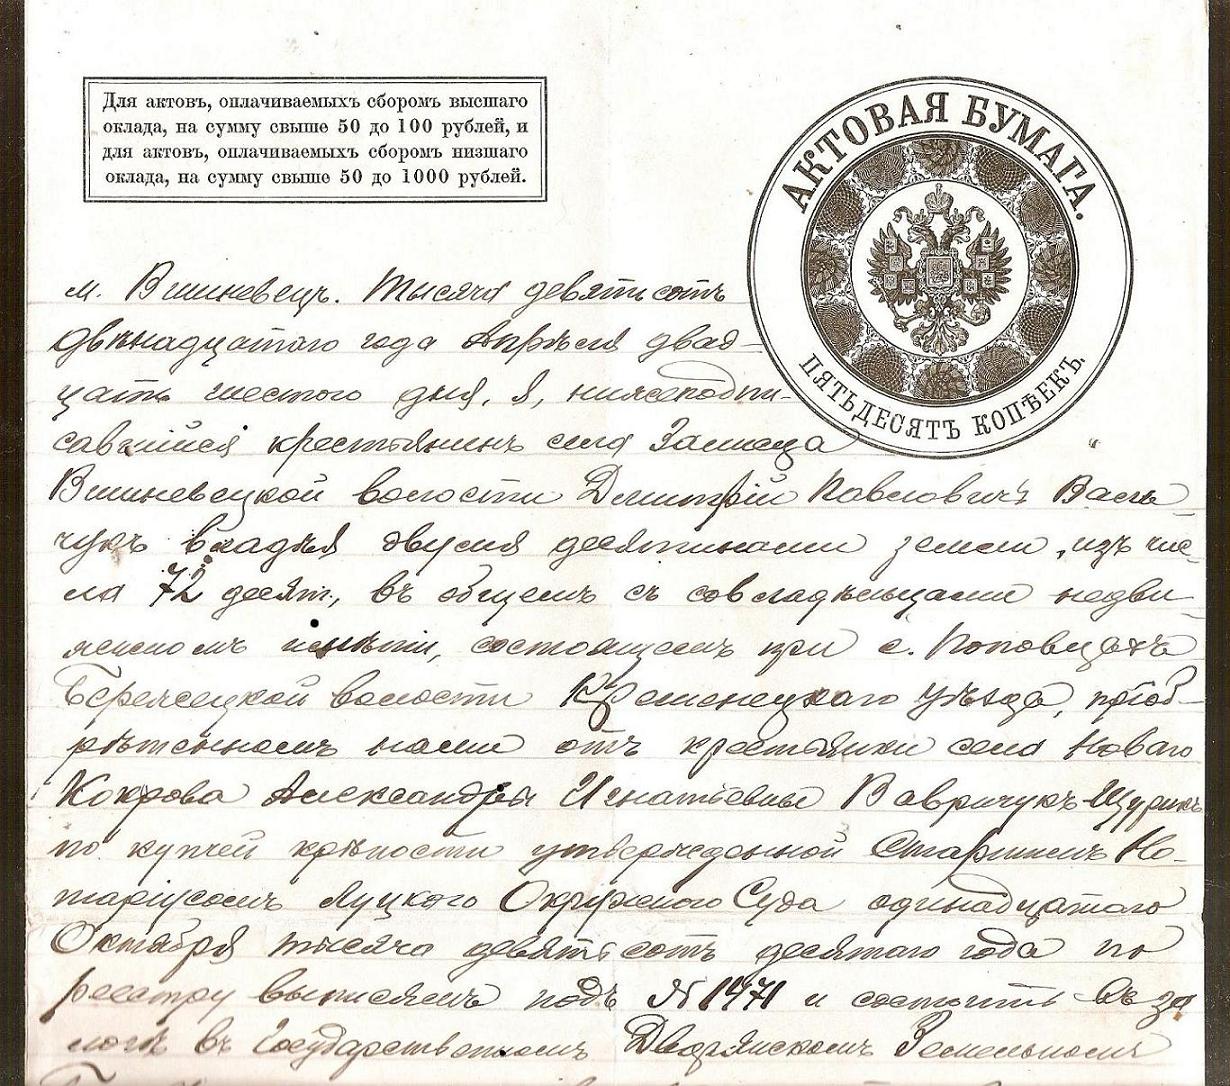 Для актовъ, оплачиваемыхъ сборомъ высшаго
оклада, на сумму свыше 50 до 100 рублей, и
для актовъ, оплачиваемыхъ сборомъ низшаго
оклада, на сумму свыше 50 до 1000 рублей.
АКТОВАЯ БУМАГА.
ПЯТЬДЕСЯТЪ КОПѢЕКЪ.
м. Вишневецъ. Тысяча девятьсотъ
двѣнадцатаго года Апрѣля двад-
цать шестого дня, я, нижеподпи-
савшійся крестьянинъ села
Вишневецкой волости Дмитрій Павловичъ Вась-
чукъ владѣя двумя десятинами земли, изъ чис-
ла 72 десят., въ общемъ съ совладѣльцами недви-
жимомъ имѣніи, состоящемъ при с. Поповцахъ
Бережецкой волости Кременецкаго уѣзда, пріоб-
рѣтенномъ нами отъ крестьянки села Новаго
Кокрова Александры Игнатьевны Вавричукъ-Щурикъ
по купчей крѣпости утвержденной Старшимъ Но-
таріусомъ Луцкаго Окружного Суда одинадцатаго
Октября тысяча девятьсотъ десятаго года по
реестру выписямъ подъ № 1471 и состоитъ въ за
логѣ въ Государственномъ Дворянскомъ Земельномъ